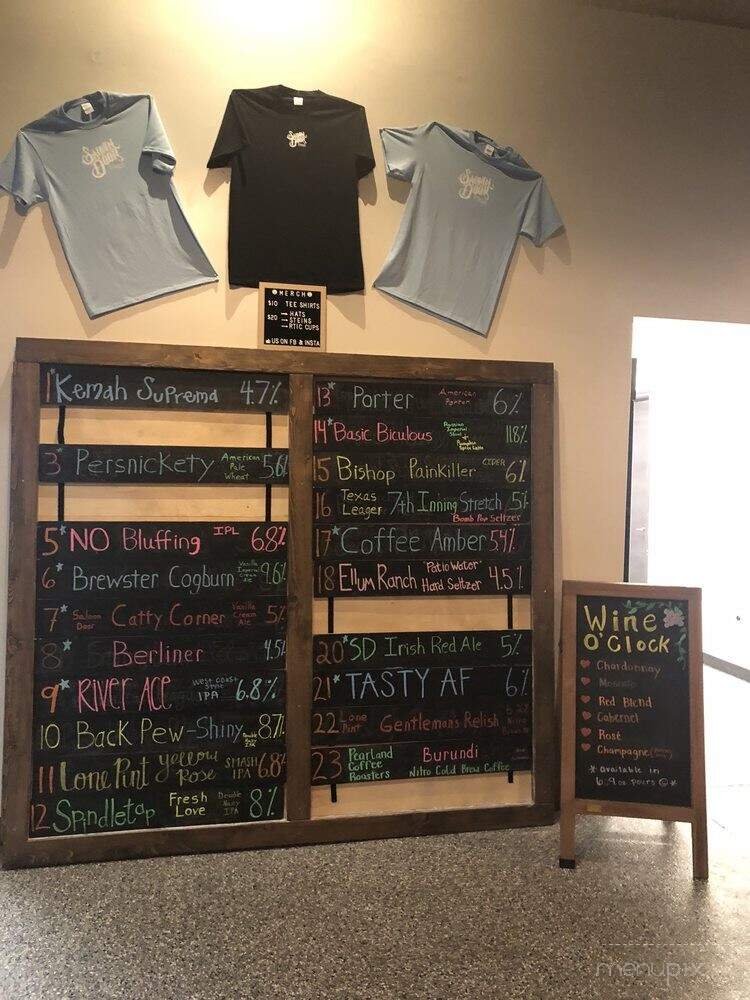 Saloon Door
Saloon Door
Saloon Door
MERCH
$10 TEE SHIRTS
$20 → HATS
→ STEINS
→ RTIC CUPS
US ON FB & INSTA
1* Kemah Suprema 4.7%
3* Persnickety American Pale Wheat 5.6%
5* NO Bluffing IPL 6.8%
6* Brewster Cogburn Vanilla Imperial Cream Ale 9.6%
7* Saloon Door Catty Corner Vanilla Cream Ale 5%
8* Berliner 4.5%
9* RIVER ACE West Coast Style IPA 6.8%
10 Back Pew-Shiny 8.7%
11 Lone Pint Yellow Rose SMASH IPA 6.8%
12 Spindletap Fresh Love Double Hazy IPA 8%
13* Porter American Porter 6%
14* Basic Biculous Russian Imperial Stout + Pumpkin Spice Latte 11.8%
15 Bishop Painkiller CIDER 6%
16 Texas Leager 7th Inning Stretch 5%
Bomb Pop Seltzer
17* Coffee Amber 5.4%
18 Ellum Ranch Patio Water Hard Seltzer 4.5%
20* SD Irish Red Ale 5%
21* TASTY AF 6%
22 Lone Pint Gentleman's Relish Nitro
23 Pearland Coffee Roasters Burundi
Nitro Cold Brew Coffee
Wine
O'Clock
Chardonnay
Moscato
Red Blend
Cabernet
Rosé
Champagne
* available in
6 & 9 oz pours *
menupix